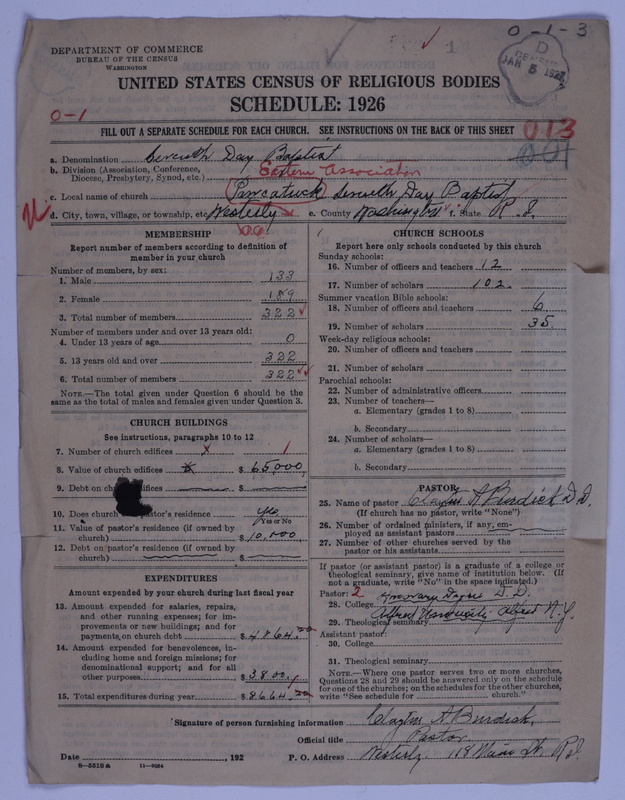 O-1-3
1
D
CENSUS
JAN 5 1927
DEPARTMENT OF COMMERCE
BUREAU OF THE CENSUS
WASHINGTON
UNITED STATES CENSUS OF RELIGIOUS BODIES
SCHEDULE: 1926
O-1
FILL OUT A SEPARATE SCHEDULE FOR EACH CHURCH. SEE INSTRUCTIONS ON THE BACK OF THIS SHEET
013
001
a. Denomination Seventh Day Baptist
b. Division (Association, Conference, Diocese, Presbytery, Synod, etc.) Eastern Association
c. Local name of church Pawcatuck Seventh Day Baptist
d. City, town, village, or township, etc. Westerly e. County Washington f. State R.I.
MEMBERSHIP
Report number of members according to definition of
member in your church
Number of members, by sex:
1. Male 133
2. Female 189
3. Total number of members 322
Number of members under and over 13 years old:
4. Under 13 years of age 0
5. 13 years old and over 322
6. Total number of members 322
NOTE.—The total given under Question 6 should be
same as the total of males and females given under Question 3.
CHURCH BUILDINGS
See instructions, paragraphs 10 to 12
7. Number of church edifices 1
8. Value of church edifices $ 65,000
9. Debt on church edifices $
10. Does church pastor's residence yes
Yes or No
11. Value of pastor's residence (if owned by
church) $ 10,000
12. Debt on pastor's residence (if owned by
church) $
EXPENDITURES
Amount expended by your church during last fiscal year
13. Amount expended for salaries, repairs,
and other running expenses; for im-
provements or new buildings; and for
payments on church debt $ 4864.00
14. Amount expended for benevolences, in-
cluding home and foreign missions; for
denominational support; and for all
other purposes $ 3800.
15. Total expenditures during year $ 8664.00
CHURCH SCHOOLS
Report here only schools conducted by this church
Sunday schools:
16. Number of officers and teachers 12
17. Number of scholars 102
Summer vacation Bible schools:
18. Number of officers and teachers 6
19. Number of scholars 35
Week-day religious schools:
20. Number of officers and teachers
21. Number of scholars
Parochial schools:
22. Number of administrative officers
23. Number of teachers—
a. Elementary (grades 1 to 8)
b. Secondary
24. Number of scholars—
a. Elementary (grades 1 to 8)
b. Secondary
PASTOR
25. Name of pastor Clayton A Burdick D.D.
(If church has no pastor, write "None")
26. Number of ordained ministers, if any, em-
ployed as assistant pastors
27. Number of other churches served by the
pastor or his assistants
If pastor (or assistant pastor) is a graduate of a college or
theological seminary, give name of institution below. (If
not a graduate, write "No" in the space indicated.)
Pastor: 2 Honorary Degree D.D.
28. College Alfred University Alfred N.Y.
29. Theological seminary
Assistant pastor:
30. College
31. Theological seminary
NOTE.—Where one pastor serves two or more churches,
Questions 28 and 29 should be answered only on the schedule
for one of the churches; on the schedules for the other churches,
write "See schedule for church."
Signature of person furnishing information Clayton A Burdick,
Official title Pastor
Date , 192 P. O. Address Westerly 118 Main St. R.I.
8—5319a 11—9024